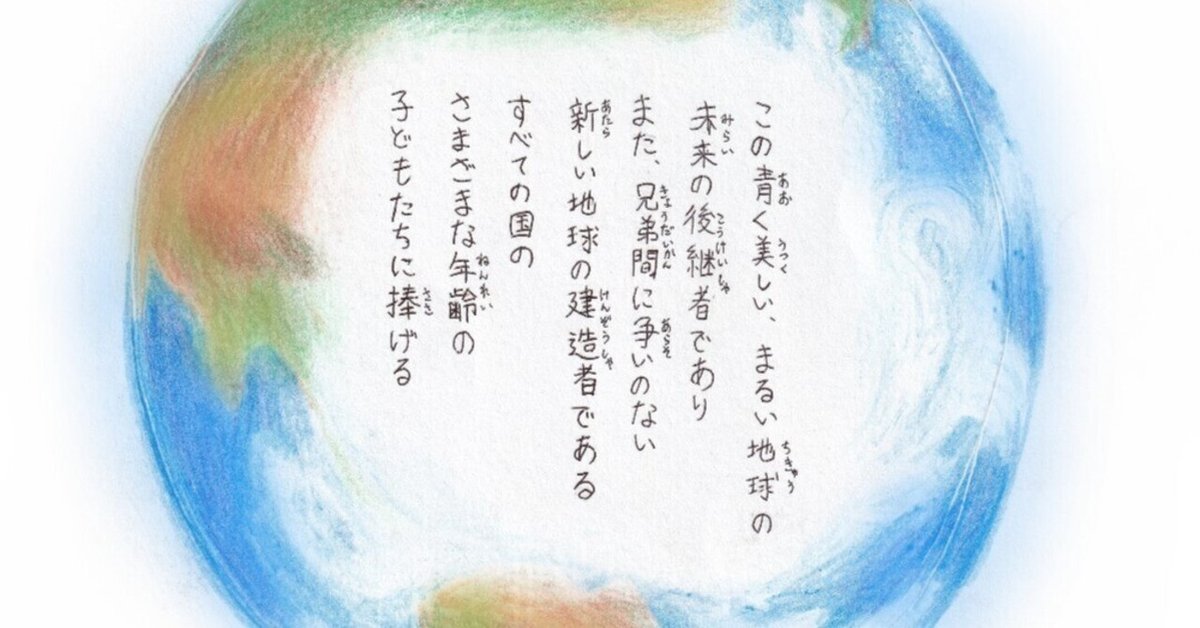 この青く美しい、まるい地球の
未来の後継者であり
また、兄弟間に争いのない
新しい地球の建造者である
すべての国の
さまざまな年齢の
子どもたちに捧げる